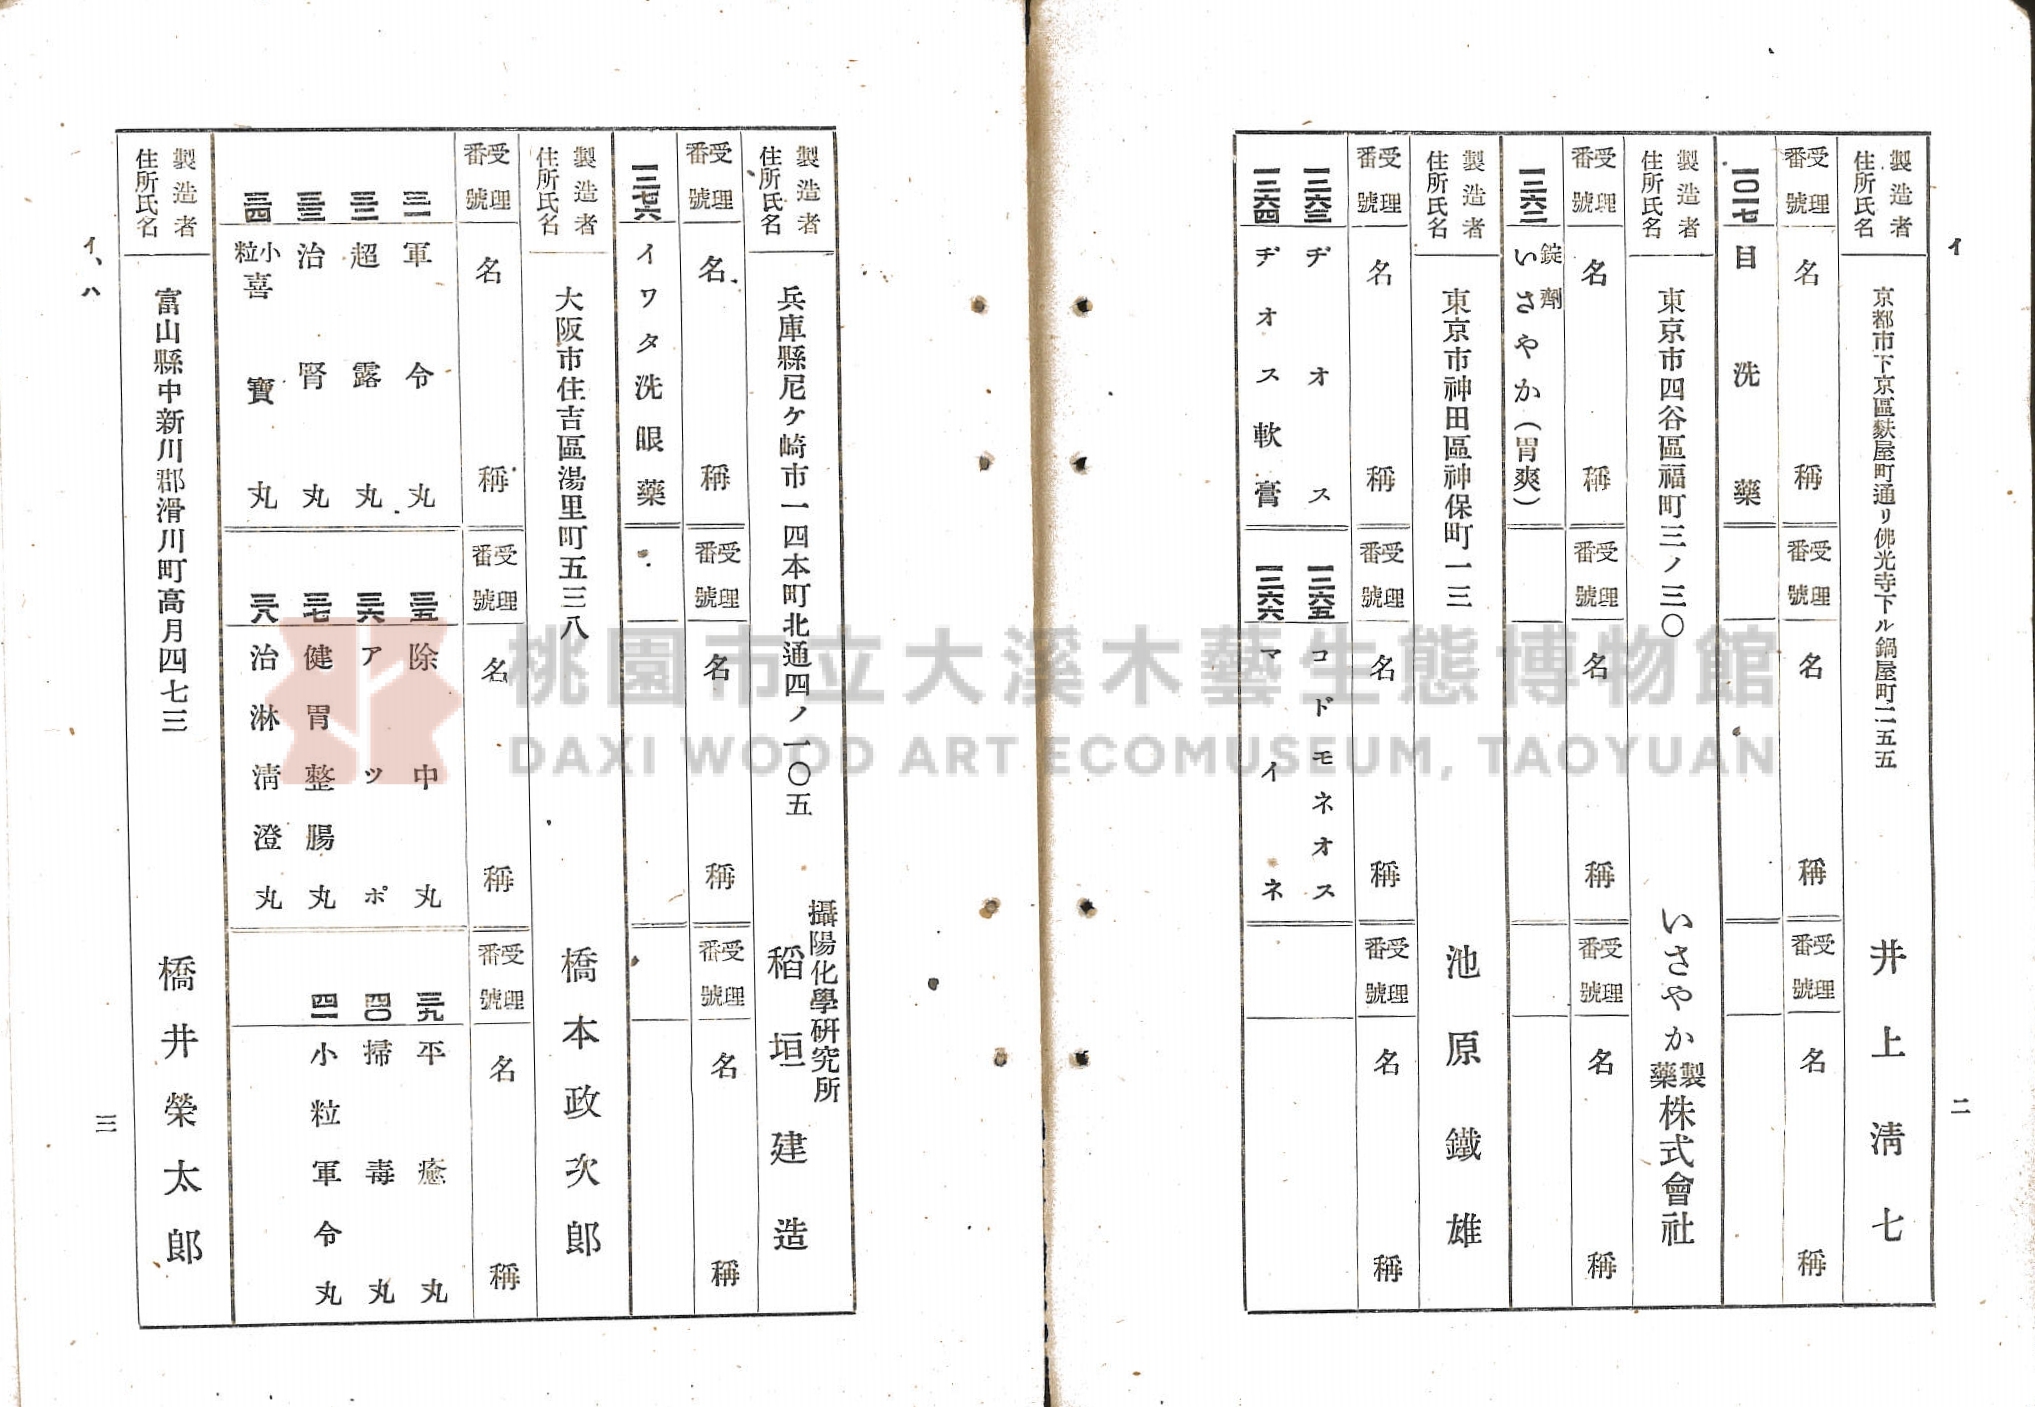 イ
二
製造者
住所氏名
京都市下京區麩屋町通リ佛光寺下ル鍋屋町二五五
井上淸七
受理番號
名稱
受理番號
名稱
受理番號
名稱
一〇一七
目洗藥
製造者
住所氏名
東京市四谷區福町三ノ三〇
いさやか製藥株式會社
受理番號
名稱
受理番號
名稱
受理番號
名稱
一二六二
錠劑
いさやか(胃爽)
製造者
住所氏名
東京市神田區神保町一三
池原鐵雄
受理番號
名稱
受理番號
名稱
受理番號
名稱
一二六三
ヂオス
一二六五
コドモネオス
一二六四
ヂオス軟膏
一二六六
マイネ
製造者
住所氏名
兵庫縣尼ケ崎市一四本町北通四ノ一〇五
攝陽化學研究所
稻垣建造
受理番號
名稱
受理番號
名稱
受理番號
名稱
一二七六
イワタ洗眼藥
製造者
住所氏名
大阪市住吉區湯里町五三八
橋本政次郎
受理番號
名稱
受理番號
名稱
受理番號
名稱
三一
軍令丸
三五
除中丸
三九
平癒丸
三二
超露丸
三六
アツポ
四〇
掃毒丸
三三
治腎丸
三七
健胃整腸丸
四一
小粒軍令丸
三四
小粒喜寶丸
三八
治淋淸澄丸
製造者
住所氏名
富山縣中新川郡滑川町高月四七三
橋井榮太郎
イ、ハ
三
桃園市立大溪木藝生態博物館
DAXI WOOD ART ECOMUSEUM, TAOYUAN